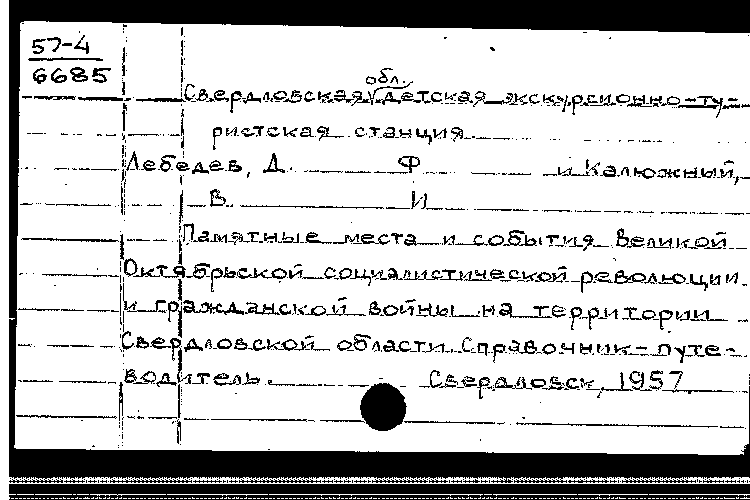 57-4
6685
обл.
Свердловская детская экскурсионно-ту-
ристская станция
Лебедев, Д. Ф и Калюжный,
В. И
Памятные места и события Великой
Октябрьской социалистической революции
и гражданской войны на территории
Свердловской области. Справочник-путе-
водитель. Свердловск, 1957